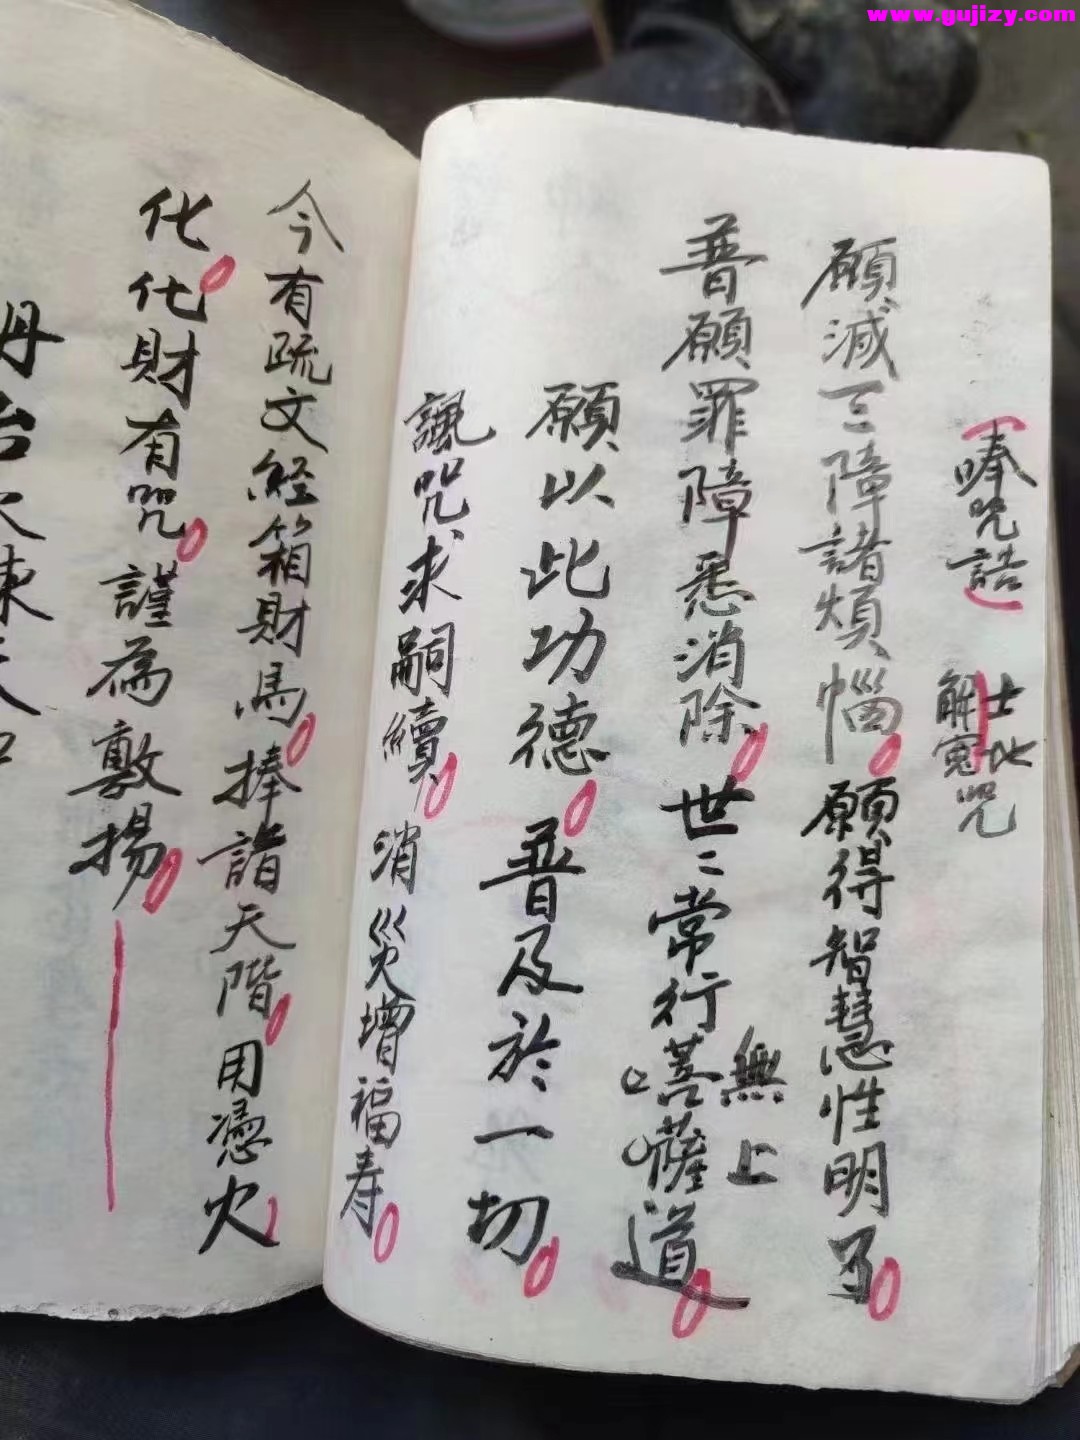 www.gujizy.com
唪咒誥
解冤咒
願減三障諸煩惱願得智慧性明了
普願罪障悉消除世〻常行菩薩道
無上
願以此功德普及於一切
諷咒求嗣續消災增福寿
今有疏文經箱財馬捧詣天階用憑火
化化財有咒謹為敷揚